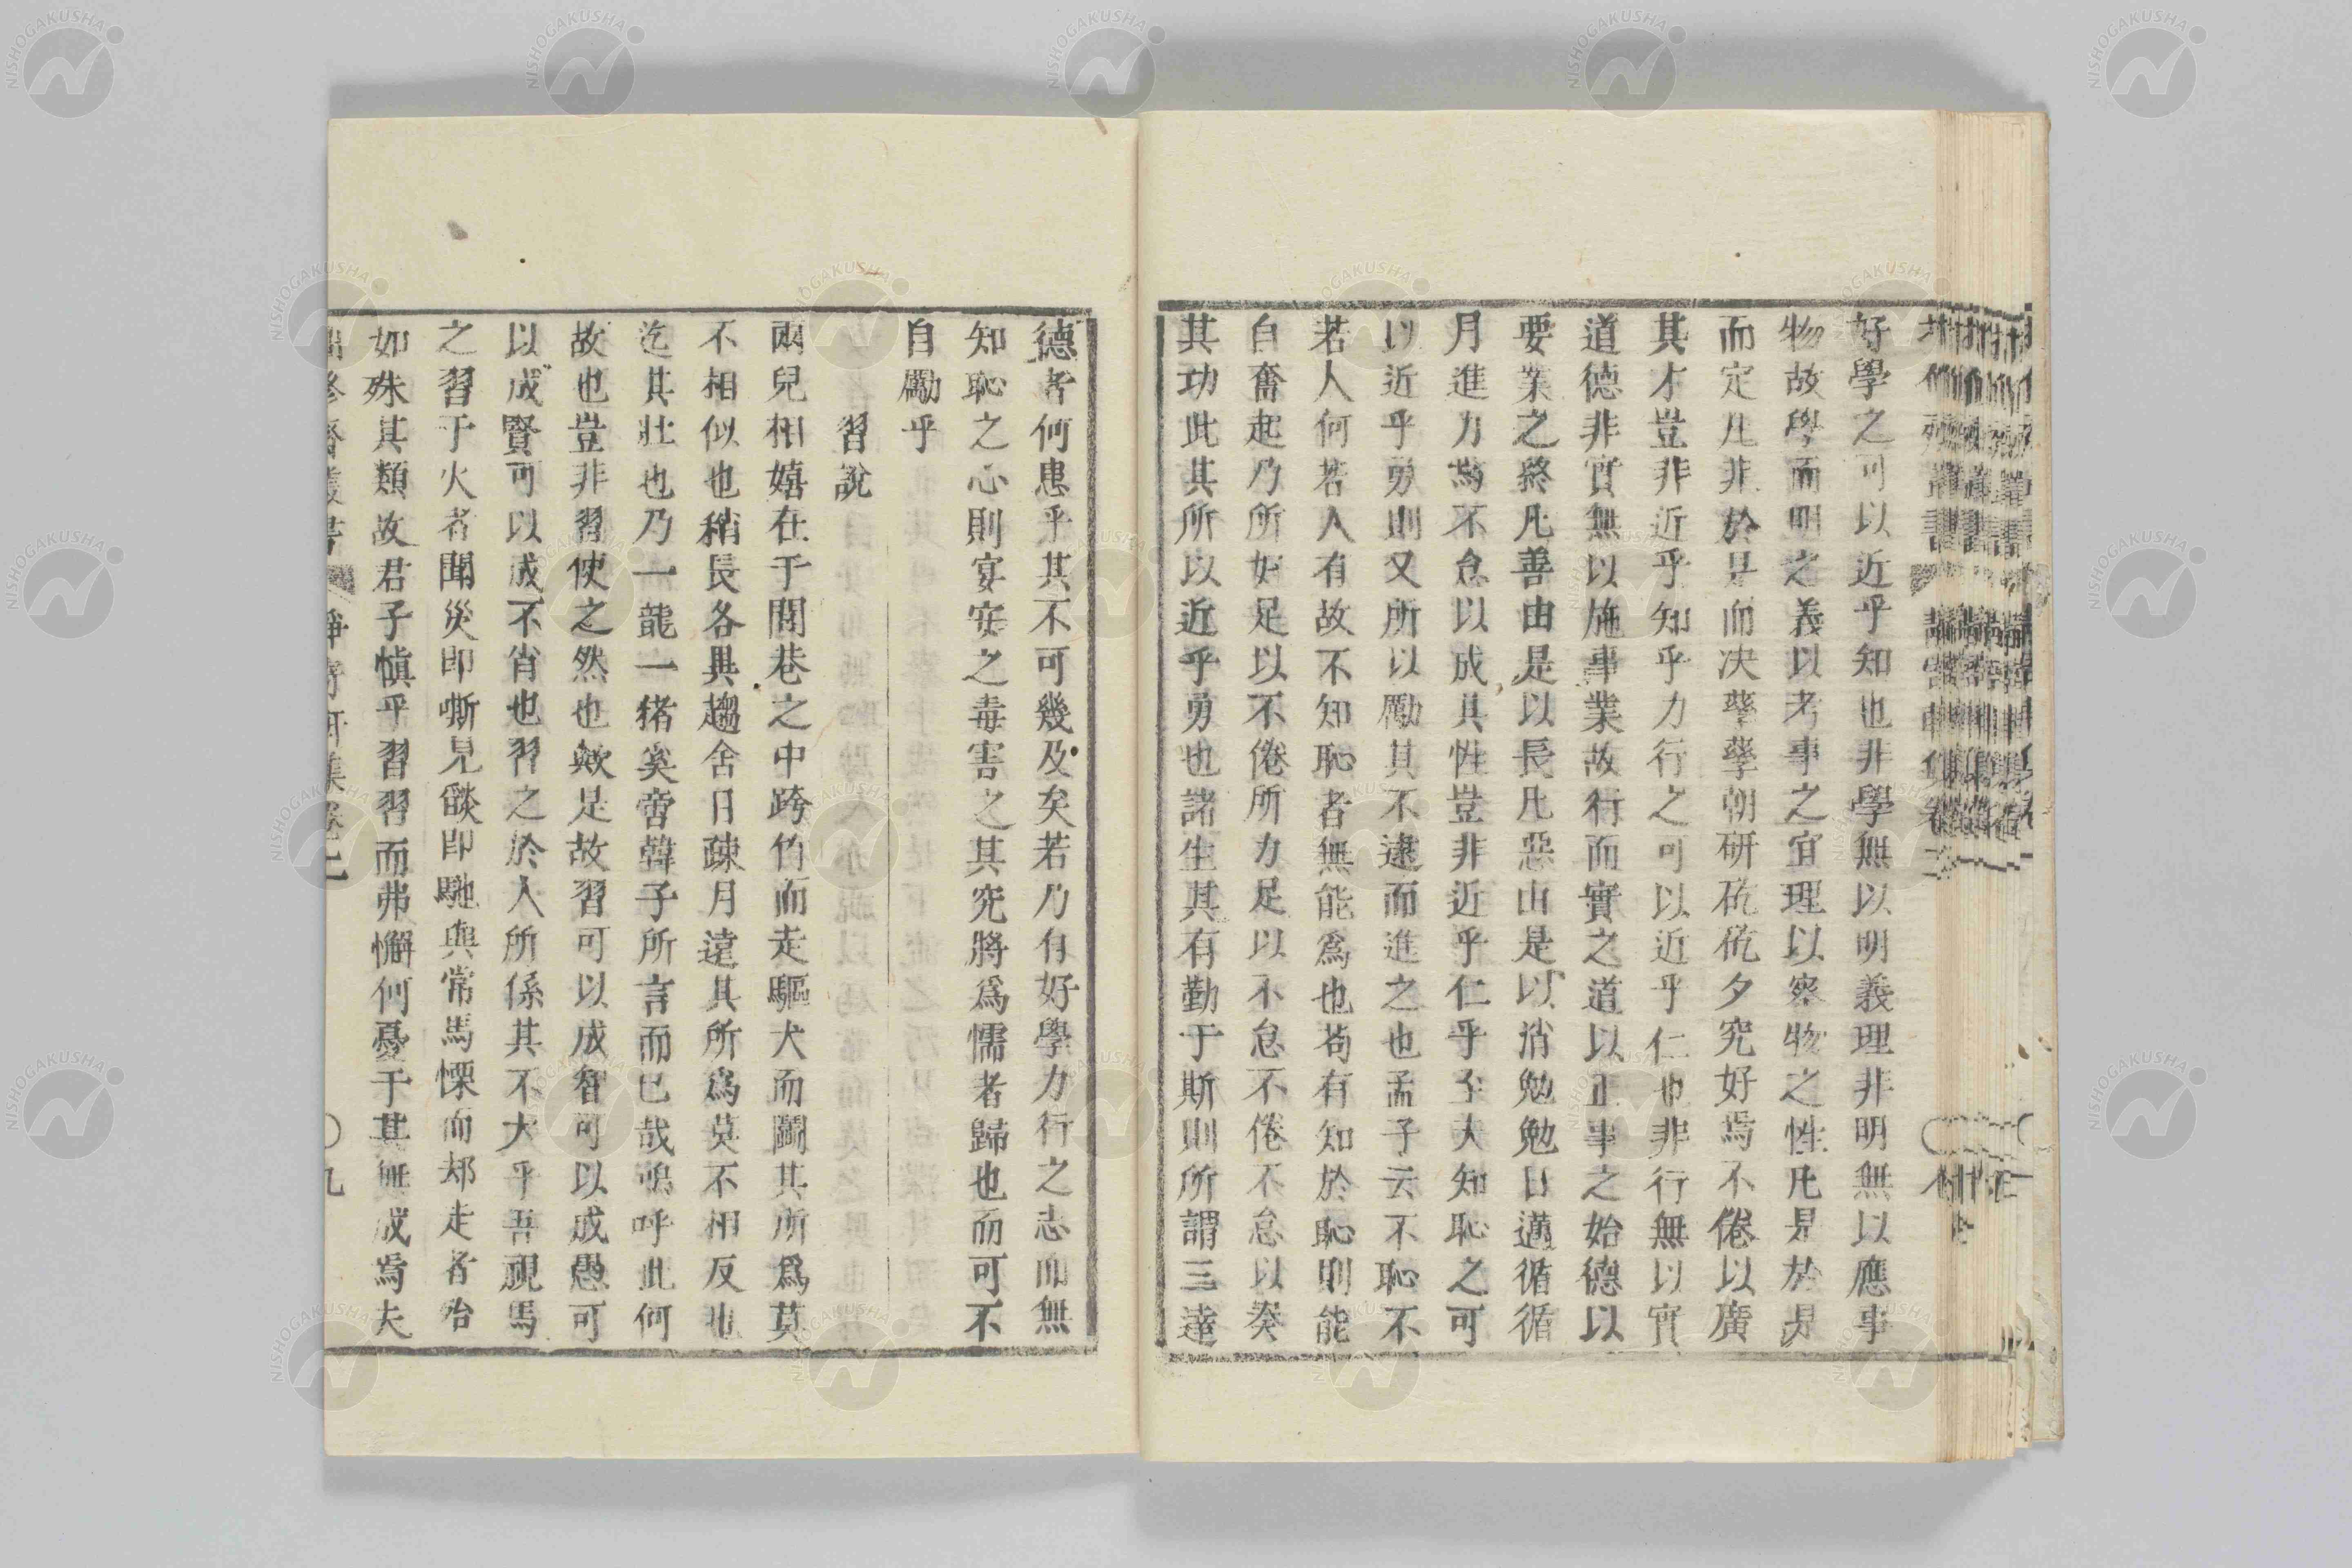 好學之可以近乎知也非學無以明義理非明無以應事
物故學而明之義以考事之宜理以察物之性凡是於是
而定凡非於是而决孳孳朝研矻矻夕究好焉不倦以廣
其才豈非近乎知乎力行之可以近乎仁也非行無以實
道德非實無以施事業故行而實之道以正事之始德以
要業之終凡善由是以長凡惡由是以消勉勉日邁循循
月進力焉不怠以成其性豈非近乎仁乎至夫知恥之可
以近乎勇則又所以勵其不逮而進之也孟子云不恥不
若人何若人有故不知恥者無能爲也苟有知於恥則能
自奮起乃所好足以不倦所力足以不怠不倦不怠以奏
其功此其所以近乎勇也諸生其有勤于斯則所謂三達
德者何患乎其不可幾及矣若乃有好學力行之志而無
知恥之心則宴安之毒害之其究將爲懦者歸也而可不
自勵乎
習說
兩兒相嬉在于閭巷之中跨竹而走驅犬而鬭其所爲莫
不相似也稍長各異趨舍日疎月遠其所爲莫不相反也
迄其壯也乃一龍一豬奚啻韓子所言而已哉嗚呼此何
故也豈非習使之然也歟是故習可以成智可以成愚可
以成賢可以成不肖也習之於人所係其不大乎吾視馬
之習于火者聞災即嘶見燄即馳與常馬慄而却走者殆
如殊其類故君子愼乎習習而弗懈何憂于其無成焉夫
NISHOGAKUSHA